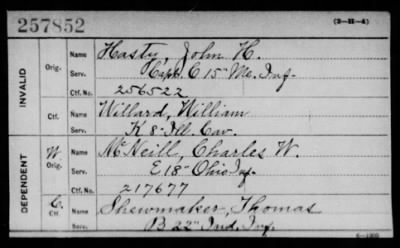 257852
(3-II-4)
INVALID
Orig.
Name Hasty, John H.
Serv. Capt. C 15" Me. Inf.
Ctf. No. 256522
Ctf.
Name Willard, William
Serv. K 8" Ill. Cav.
DEPENDENT
W.
Orig.
Name McNeill, Charles W.
Serv. E 18" Ohio Inf.
Ctf. No. 217677
C.
Ctf.
Name Shewmaker, Thomas
Serv. B 22" Ind. Inf.